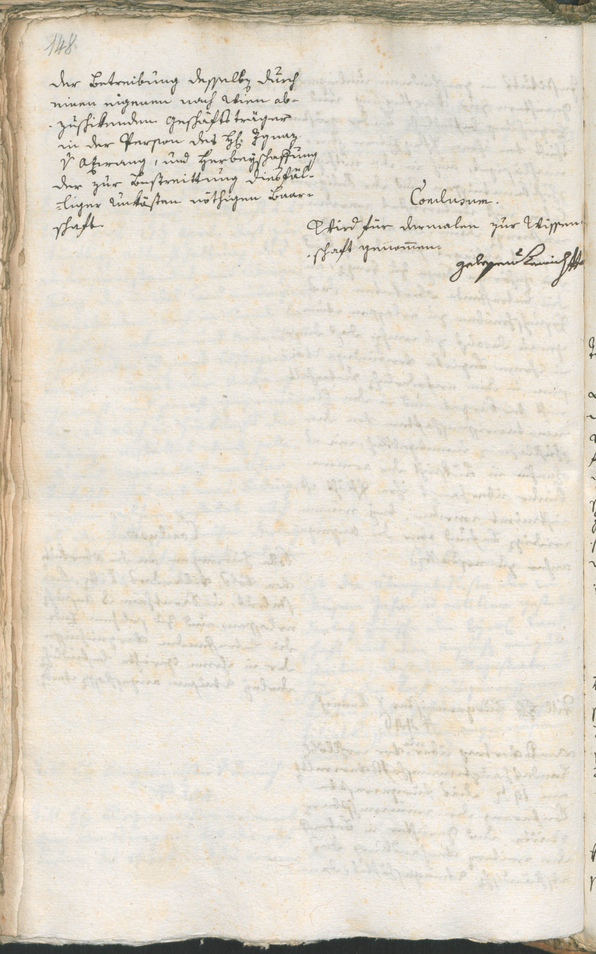 148.
der Betreibung desselben durch
einen eigenen nach Wien ab-
zuschikenden Geschäftsträger
in der Person des H: Ignaz
und Herbeyschaffung
der zur Bestreittung diesfäl-
liger Unkösten nöthigen Baar-
schaft.
Conclusum.
Wird für dermalen zur Wissen-
schaft genommen.